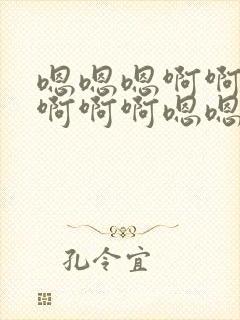 嗯嗯嗯啊啊
啊啊啊嗯嗯
孔令宜